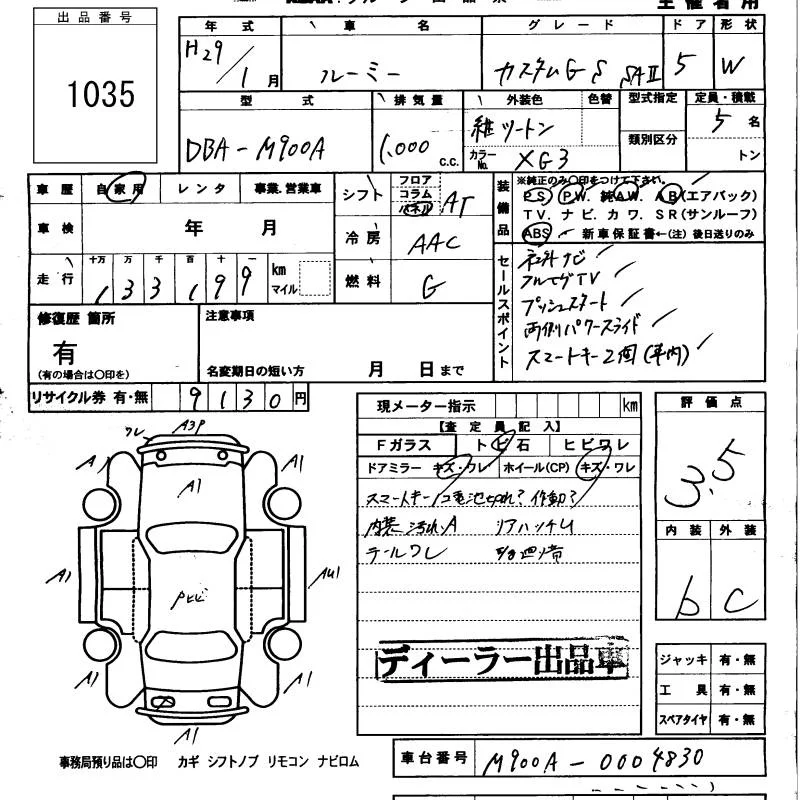 出品番号
1035
年式 車名 グレード ドア 形状
H29/1月 ルーミー カスタムG S SAⅡ 5 W
型式 排気量 外装色 色替 型式指定 定員・積載
DBA-M900A 1,000 c.c. 紺ツートン 類別区分 5名
カラーNo. XG3 トン
車歴 自家用 レンタ 事業.営業車
車検 年 月
走行 十万 万 千 百 十 一
133199 km マイル
シフト フロア コラム パネル AT
冷房 AAC
燃料 G
装備品
※純正のみ〇印をつけて下さい。
PS. PW. 純AW. AB(エアバック)
TV. ナビ. カワ. SR(サンルーフ)
ABS 新車保証書←(注)後日送りのみ
セールスポイント
社外ナビ
フルセグTV
プッシュスタート
両側パワースライド
スマートキー2個(車内)
修復歴 箇所
有
(有の場合は〇印を)
注意事項
名変期日の短い方 月 日まで
リサイクル券 有・無 9130円
現メーター指示 km
【査定員記入】
Fガラス トビ石 ヒビワレ
ドアミラー キズ・ワレ ホイール(CP) キズ・ワレ
スマートキー1コ電池切れ?作動?
内装汚れA リアハッチム
テールワレ
ディーラー出品車
評価点
3.5
内装 外装
b C
ジャッキ 有・無
工具 有・無
スペアタイヤ 有・無
ワレ A3P
A1 A1
A1
A1 AU1
A1 A1
A1
事務局預り品は〇印 カギ シフトノブ リモコン ナビロム
車台番号 M900A-0004830